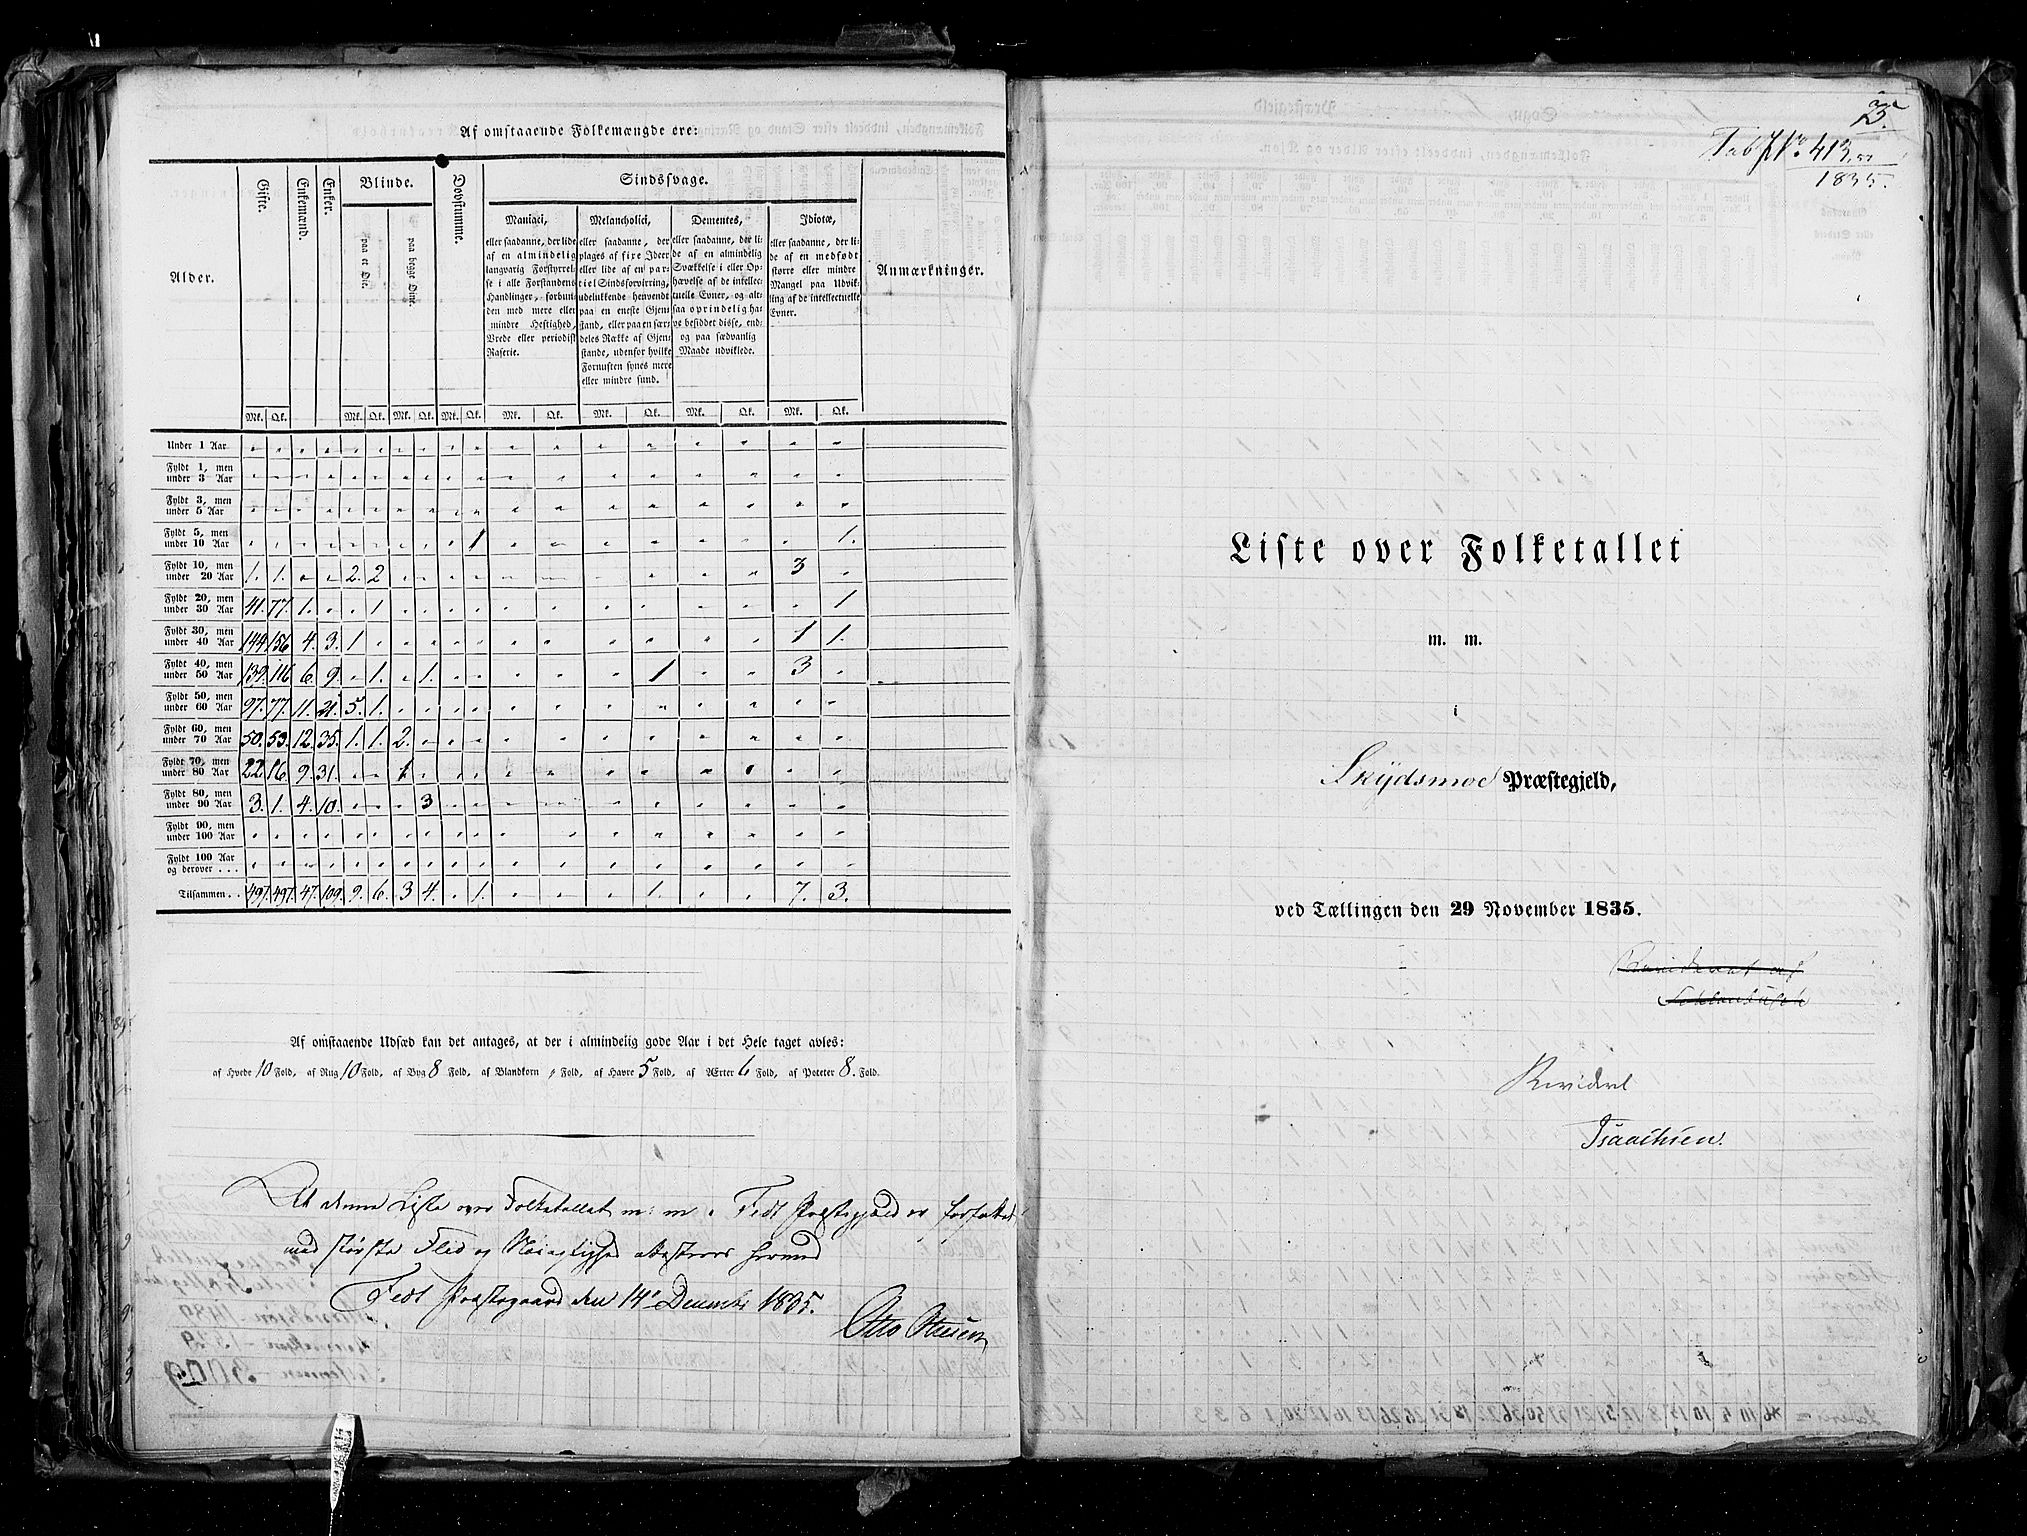 Af omstaaende Folkemængde ere:
Alder.
Gifte.
Enkemænd.
Enker.
Blinde.
paa et Øie.
paa begge Øine.
Døvstumme.
Sindssvage.
Maniaci,
eller saadanne, der lide
af en almindelig
langvarig Forstyrrel-
se i alle Forstandens
Handlinger, forbun-
den med mere eller
mindre Heftighed,
Vrede eller periodisk
Raserie.
Melancholici,
eller saadanne, der
plages af fixe Ideer
eller lide af en par-
tiel Sindsforvirring,
udelukkende henvendt
paa en eneste Gjen-
stand, eller paa en sær-
deles Række af Gjen-
stande, udenfor hvilke
Fornuften synes mere
eller mindre sund.
Dementes,
eller saadanne, der li-
de af en almindelig
Svækkelse i eller Op-
hævelse af de intellec-
tuelle Evner, og alt-
saa oprindelig ha-
ve besiddet disse, end-
og paa sædvanlig
Maade udviklede.
Idiotæ,
eller saadanne, der li-
de af en medfødt
større eller mindre
Mangel paa Udvik-
ling af de intellectuelle
Evner.
Anmærkninger.
Mk. Qk. Mk. Qk. Mk. Qk. Mk. Qk. Mk. Qk. Mk. Qk. Mk. Qk. Mk. Qk.
Under 1 Aar
Fyldt 1, men
under 3 Aar
Fyldt 3, men
under 5 Aar
Fyldt 5, men
under 10 Aar 1 1.
Fyldt 10, men
under 20 Aar 1. 1. 2. 2 3
Fyldt 20, men
under 30 Aar 41. 77. 1. 1 1
Fyldt 30, men
under 40 Aar 144. 156 4. 3. 1 1 1.
Fyldt 40, men
under 50 Aar 139. 116 6. 9. 1. 1. 1 3
Fyldt 50, men
under 60 Aar 97. 77. 11. 21. 5. 1.
Fyldt 60, men
under 70 Aar 50. 53. 12. 35. 1. 1. 2.
Fyldt 70, men
under 80 Aar 22. 16. 9. 31. 1.
Fyldt 80, men
under 90 Aar 3. 1. 4. 10. 3
Fyldt 90, men
under 100 Aar
Fyldt 100 Aar
og derover . . .
Tilsammen . . 497. 497. 47. 109. 9. 6. 3 4. 1. 1. 7. 3.
Af omstaaende Udsæd kan det antages, at der i almindelig gode Aar i det Hele taget avles:
af Hvede 10 Fold, af Rug 10 Fold, af Byg 8 Fold, af Blandkorn „ Fold, af Havre 5 Fold, af Ærter 6 Fold, af Poteter 8. Fold.
At denne Liste over Folketallet m: m. i Fedt Præstegjeld er forfattet
med største Flid og Nøiagtighed attesteres herved
Fedt Præstegaard den 14de December 1835.
Otto
Tab. No. 413
1835.
Liste over Folketallet
m. m.
i
Skydsmoe Præstegjeld,
ved Tællingen den 29 November 1835.
Revideret af
Revideret
Isaachsen.